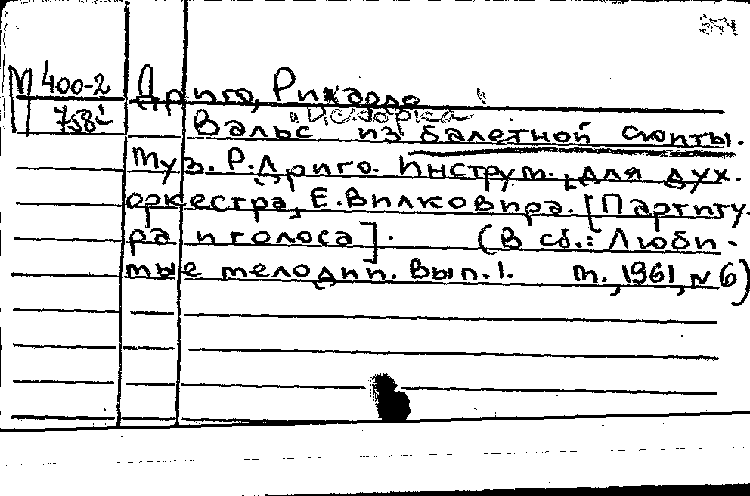 М 400-2
758
Дриго, Рикардо
Вальс из балетной сюиты.
Муз. Р. Дриго. Инструм. для дух.
оркестра, Е. Вилковира. [Партиту-
ра и голоса]. (В сб.: Люби-
мые мелодии. Вып. 1. М., 1961, N 6)